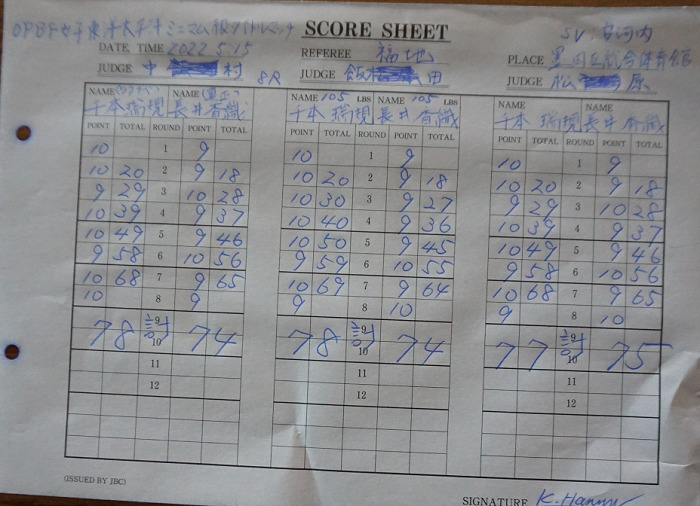 OPBF女子東洋太平洋ミニマム級タイトルマッチ SCORE SHEET SV:安河内
DATE, TIME 2022.5.15 REFEREE 福地 PLACE 墨田区総合体育館
JUDGE 中村 8R JUDGE 飯田 JUDGE 松原
NAME NAME NAME 105 LBS NAME 105 LBS NAME NAME
千本 瑞規 長井 香織 千本 瑞規 長井 香織 千本 瑞規 長井 香織
POINT TOTAL ROUND POINT TOTAL POINT TOTAL ROUND POINT TOTAL POINT TOTAL ROUND POINT TOTAL
10 1 9 10 1 9 10 1 9
10 20 2 9 18 10 20 2 9 18 10 20 2 9 18
9 29 3 10 28 10 30 3 9 27 9 29 3 10 28
10 39 4 9 37 10 40 4 9 36 10 39 4 9 37
10 49 5 9 46 10 50 5 9 45 10 49 5 9 46
9 58 6 10 56 9 59 6 10 55 9 58 6 10 56
10 68 7 9 65 10 69 7 9 64 10 68 7 9 65
10 8 9 9 8 10 9 8 10
78 9 74 78 9 74 77 9 75
10 10 10
11 11 11
12 12 12
(ISSUED BY JBC)
SIGNATURE K.